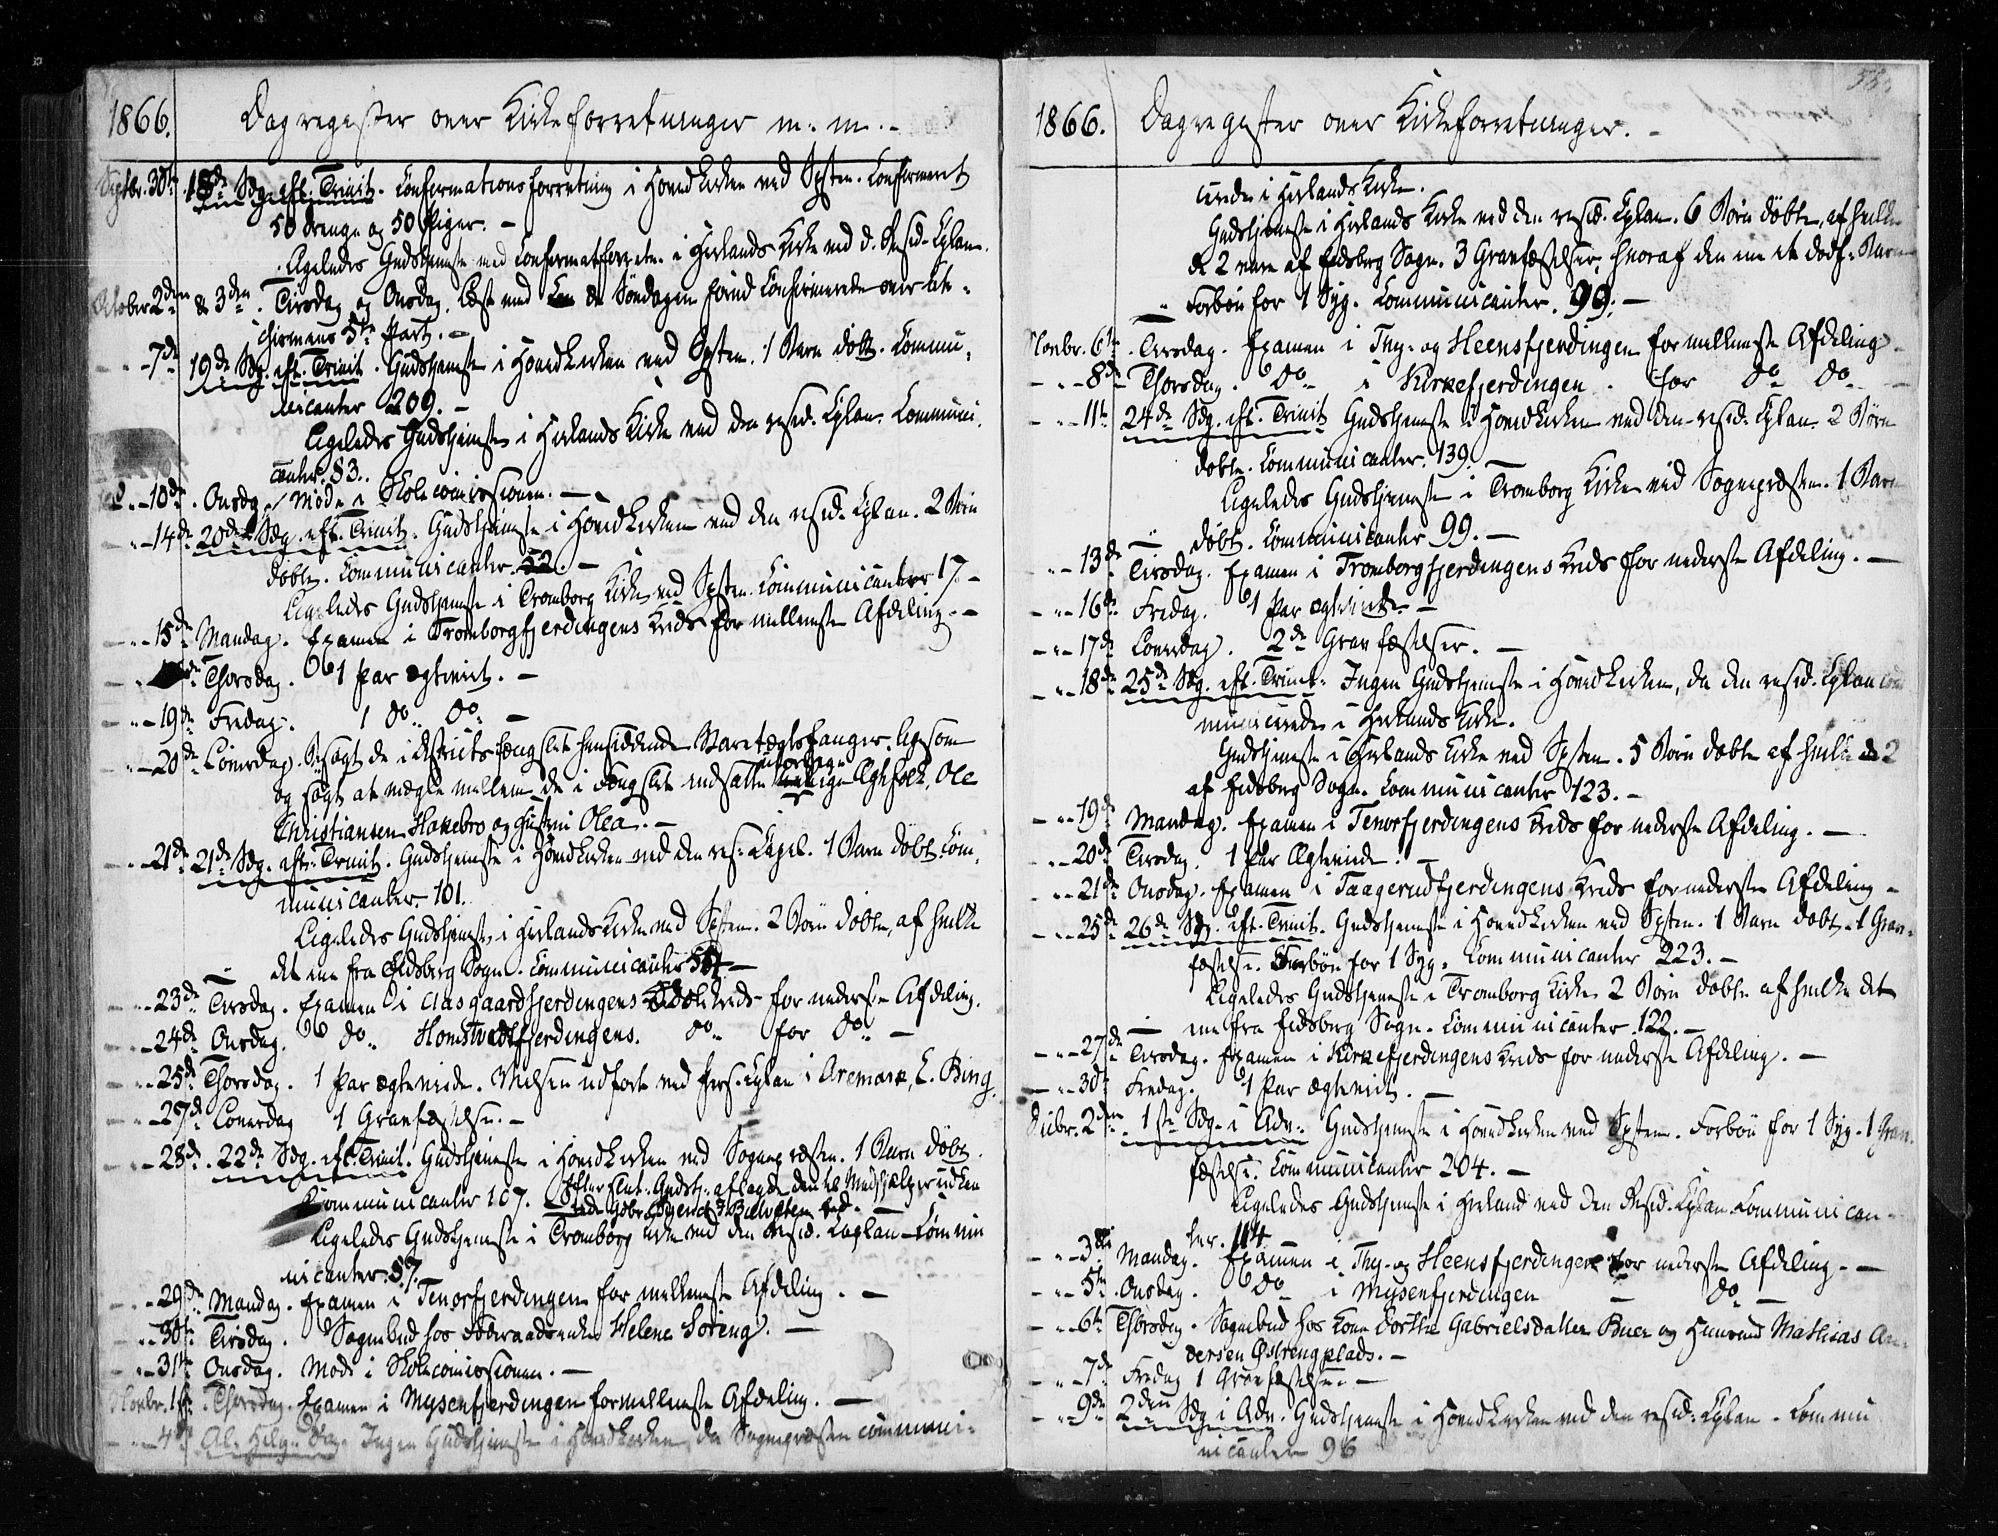 1866.
Dagregister over Kirkeforretninger m. m.
Septbr. 30te 18de Sdg. eft. Trinit. Confirmationsforretning i Hovedkirken ved Spsten. Confirmeret
50 Drenge og 50 Piger. —
Ligeledes Gudstjeneste med Confirmatforretn. i Herlands Kirke ved d. Resid. Cplan.
October 2den & 3den. Tirsdag og Onsdag. Læst med de Søndagen forud Confirmerede over Cate-
chismens 5te Part. —
- " - 7de 19de Sdg. eft. Trinit. Gudstjeneste i Hovedkirken ved Spsten. 1 Barn døbt. Commu-
nicanter 209. —
Ligeledes Gudstjeneste i Herlands Kirke ved den resid. Cplan. Communi-
canter. 83.
- 10de. Onsdag. Møde i Skolecomissionen. —
- " - 14de 20de Sdg. eft. Trinit. Gudstjeneste i Hovedkirken ved den resid. Cplan. 2 Børn
døbte. Communicanter. 52. —
Ligeledes Gudstjeneste i Tromborg Kirke ved Spsten. Communicanter 17. —
- " - 15de Mandag. Examen i Tromborgfjerdingens Kreds for mellemste Afdeling. —
- " - de Thorsdag. 1 Par ægteviet. —
- " - 19de Fredag. 1 do do —
- " - 20de Løverdag. Besøgt de i Districtsfængslet hensiddende Varetægtsfanger, ligesom
og søgt at mægle mellem de i Fængslet indsatte uenige Ægtefolk, Ole
Christiansen Hakebro og Hustru Olea. —
- " - 21de 21de Sdg. eftr. Trinit. Gudstjeneste i Hovedkirken ved den res. Capel. 1 Barn døbt. Com-
municanter 101.
Ligeledes Gudstjeneste i Herlands Kirke ved Spsten. 2 Børn døbte, af hvilke
det ene fra Eidsberg Sogn. Communicanter —
- " - 23de Tirsdag. Examen i Aasgaardfjerdingens Kreds for nederste Afdeling.
- " - 24de Onsdag. do Homstvedtfjerdingens. do for do —
- " - 25de Thorsdag. 1 Par ægteviede. Vielsen udført ved pers. Cplan i Aremark, E. Bing.
- " - 27de Løverdag 1 Gravfæstelse. —
- " - 28de. 22de Sdg. eft. Trinit. Gudstjeneste i Hovedkirken ved Sognepræsten. 1 Barn døbt.
Communicanter 107. Efter Gudstj. aflagde Medhjælper
Ligeledes Gudstjeneste i Tromborg Kirke ved den Resid. Caplan. Commu
nicanter. 57.
- " - 29de Mandag. Examen i Tenorfjerdingen for mellemste Afdeling. —
- " - 30te Tirsdag. Sognebud hos Helene Søreng. —
- " - 31te Onsdag. Møde i Skolecomissionen. —
Novbr. 1ste. Thorsdag. Examen i Mysenfjerdingen for mellemste Afdeling. —
- " - 4de Al. Helg. Dag. Ingen Gudstjeneste i Hovedkirken, da Sognepræsten communi-
1866.
Dagregister over Kirkeforretninger. —
cerede i Herlands Kirke.
Gudstjeneste i Herlands Kirke ved den resid. Cplan. 6 Børn døbte, af hvilke
de 2 vare af Eidsberg Sogn. 3 Gravfæstelser, hvoraf den ene et dødf. Barn
Forbøn for 1 Syg. Communicanter. 99. —
Novbr. 6te. Tirsdag. Examen i Thy- og Heensfjerdingen for mellemste Afdeling —
- " - 8de Thorsdag. do i Kirkefjerdingen. for do do —
- " - 11te 24de Sdg. eft. Trinit Gudstjeneste i Hovedkirken ved den resid. Cplan. 2 Børn
døbte. Communicanter. 139. —
Ligeledes Gudstjeneste i Tromborg Kirke ved Sognepræsten. 1 Barn
døbt. Communicanter 99. —
- " - 13de Tirsdag. Examen i Tromborgfjerdingens Kreds for nederste Afdeling. —
- " - 16de Fredag. 1 Par ægteviede. —
- " - 17de Løverdag. 2de Gravfæstelser. —
- " - 18de 25de Sdg. eft. Trinit. Ingen Gudstjeneste i Hovedkirken, da den resid. Cplan com
municerede i Herlands Kirke.
Gudstjeneste i Herlands Kirke ved Spsten. 5 Børn døbte af hvilke de 2
af Eidsberg Sogn. Communicanter 123. —
- " - 19de Mandag. Examen i Tenorfjerdingens Kreds for nederste Afdeling. —
- " - 20de Tirsdag. 1 Par Ægteviede. —
- " - 21de Onsdag. Examen i Taagerudfjerdingens Kreds for nederste Afdeling —
- " - 25de 26de Sdg. eft. Trinit. Gudstjeneste i Hovedkirken ved Spsten. 1 Barn døbt. 1 Grav-
fæstelse. Forbøn for 1 Syg. Communicanter 223. —
Ligeledes Gudstjeneste i Tromborg Kirke 2 Børn døbte af hvilke det
ene fra Eidsberg Sogn. Communicanter 122. —
- " - 27de Tirsdag. Examen i Kirkefjerdingens Kreds for nederste Afdeling. —
- " - 30te Fredag. 1 Par ægteviet. —
Decbr. 2den. 1ste Sdg. i Adv. Gudstjeneste i Hovedkirken ved Spsten. Forbøn for 1 Syg. 1 Grav-
fæstelse. Communicanter 204. —
Ligeledes Gudstjeneste i Herland ved den Resid. Cplan. Communican-
ter. 114
- " - 3die Mandag. Examen i Thy- og Heensfjerdingen for nederste Afdeling. —
- " - 5te. Onsdag. do i Mysenfjerdingen — do —
- " - 6te Thorsdag. Sognebud hos Kone Dorthe Gabrielsdatter Buer og Huusmd Mathias An-
dersen Østrengplads. —
- " - 7de Fredag 1 Gravfæstelse. —
- " - 9de 2den Sdg i Adv. Gudstjeneste i Hovedkirken ved den resid. Cplan. Commu
nicanter 96